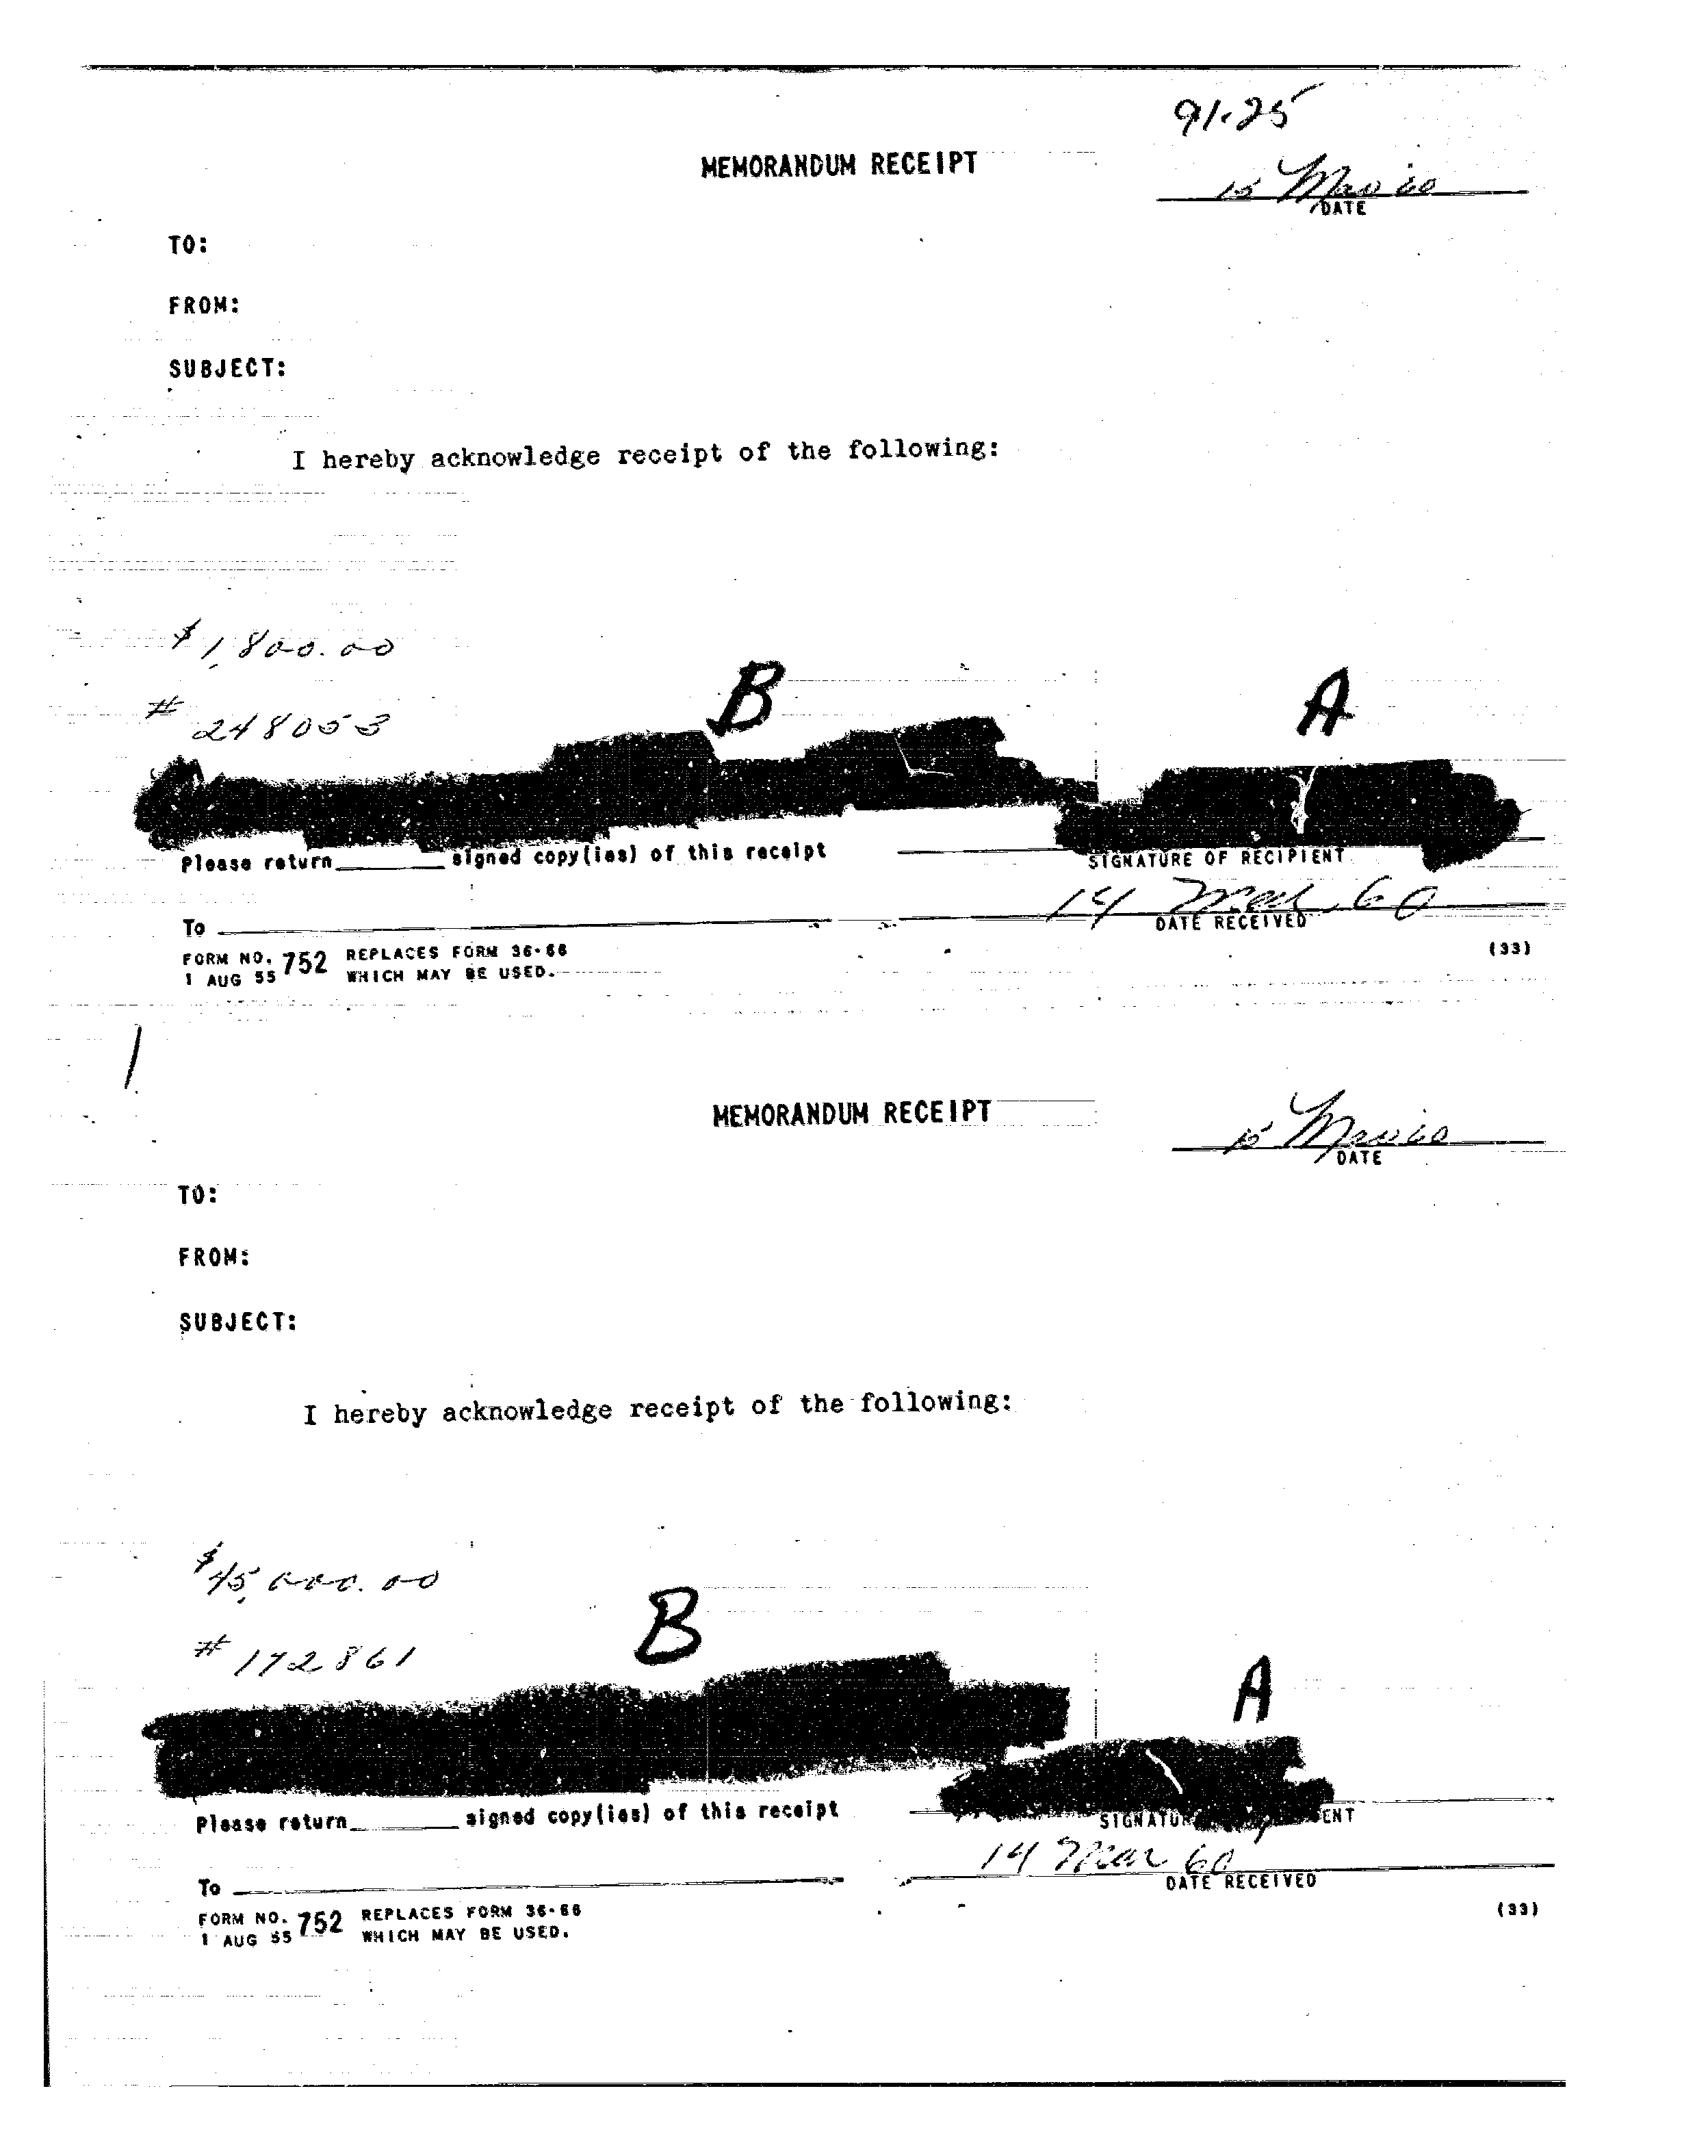 91-25
MEMORANDUM RECEIPT
15 Mar 60
DATE
TO:
FROM:
SUBJECT:
I hereby acknowledge receipt of the following:
$1,800.00
B
A
# 248053
Please return ______ signed copy(ies) of this receipt
SIGNATURE OF RECIPIENT
14 Mar 60
To
DATE RECEIVED
FORM NO. 752 REPLACES FORM 36-66
1 AUG 55 WHICH MAY BE USED.
(33)
MEMORANDUM RECEIPT
15 Mar 60
DATE
TO:
FROM:
SUBJECT:
I hereby acknowledge receipt of the following:
$45,000.00
B
# 172861
A
Please return ______ signed copy(ies) of this receipt
SIGNATU ENT
14 Mar 60
To
DATE RECEIVED
FORM NO. 752 REPLACES FORM 36-66
1 AUG 55 WHICH MAY BE USED.
(33)